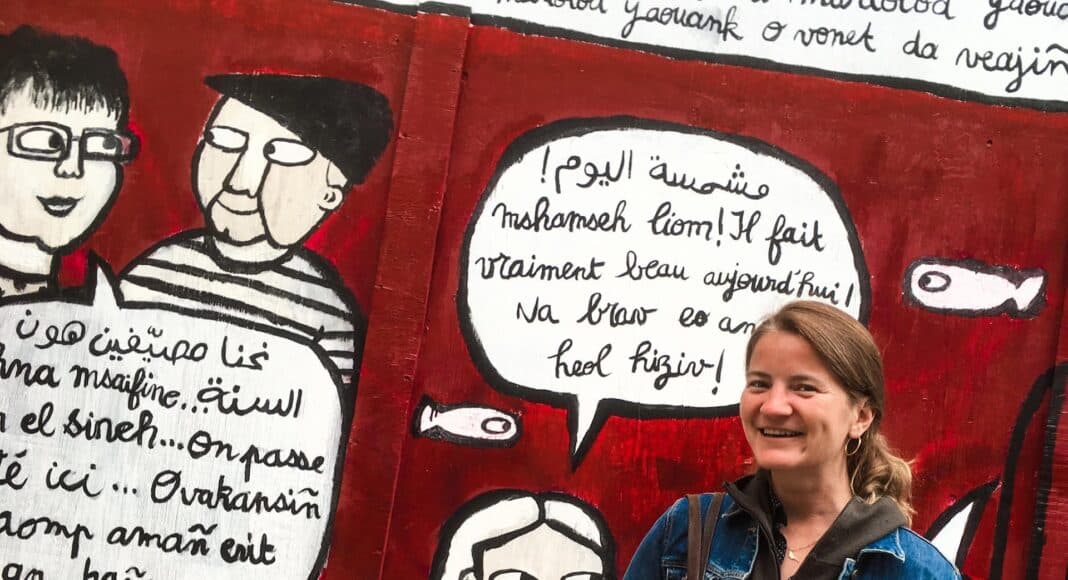 yaouank o vonet da veajiñ
مشمسة اليوم!
mshamseh liom! Il fait
vraiment beau aujourd'hui!
Na brav eo an
heol hiziv!
هون
السنة...
hna msaifine...
el sineh... on passe
té ici... Ovakansiñ
aomp amañ evit